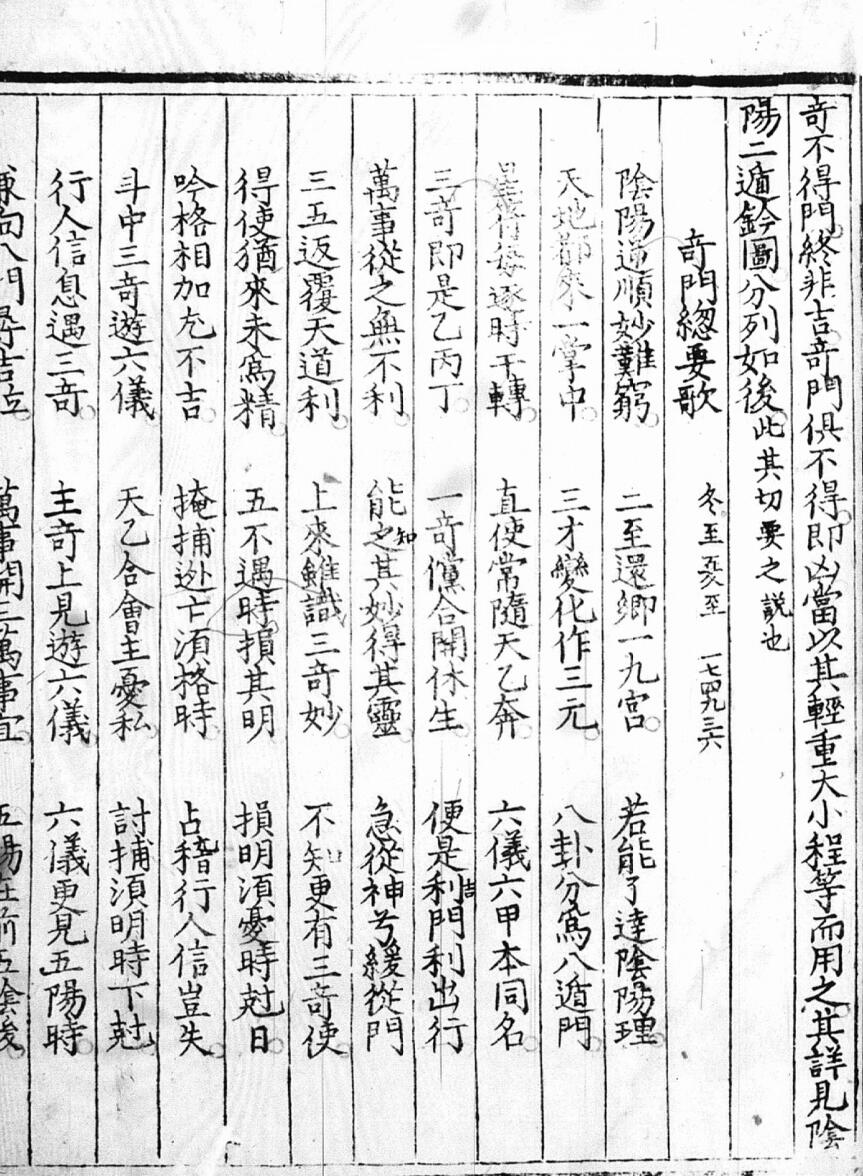 奇不得門終非吉奇門俱不得即凶當以其輕重大小程等而用之其詳見陰
陽二遁鈐圖分列如後此其切要之説也
奇門總要歌 冬至 夏至 一七四 九三六
陰陽逆順妙難窮 二至還鄉一九宮 若能了達陰陽理
天地都來一掌中 三才變化作三元 八卦分爲八遁門
星符每逐時干轉 直使常隨天乙奔 六儀六甲本同名
三奇即是乙丙丁 一奇儻合開休生 便是利吉門利出行
萬事從之無不利 能知之其妙得其靈 急從神兮緩從門
三五返覆天道利 上來雖識三奇妙 不知更有三奇使
得使猶來未爲精 五不遇時損其明 損明須憂時尅日
吟格相加尤不吉 掩捕逃亡須格時 占稽行人信豈失
斗中三奇遊六儀 天乙合會主憂私 討捕須明時下尅
行人信息遇三奇 主奇上見遊六儀 六儀更見五陽時
兼向八門尋吉位 萬事開三萬事宜 五陽在前五陰後